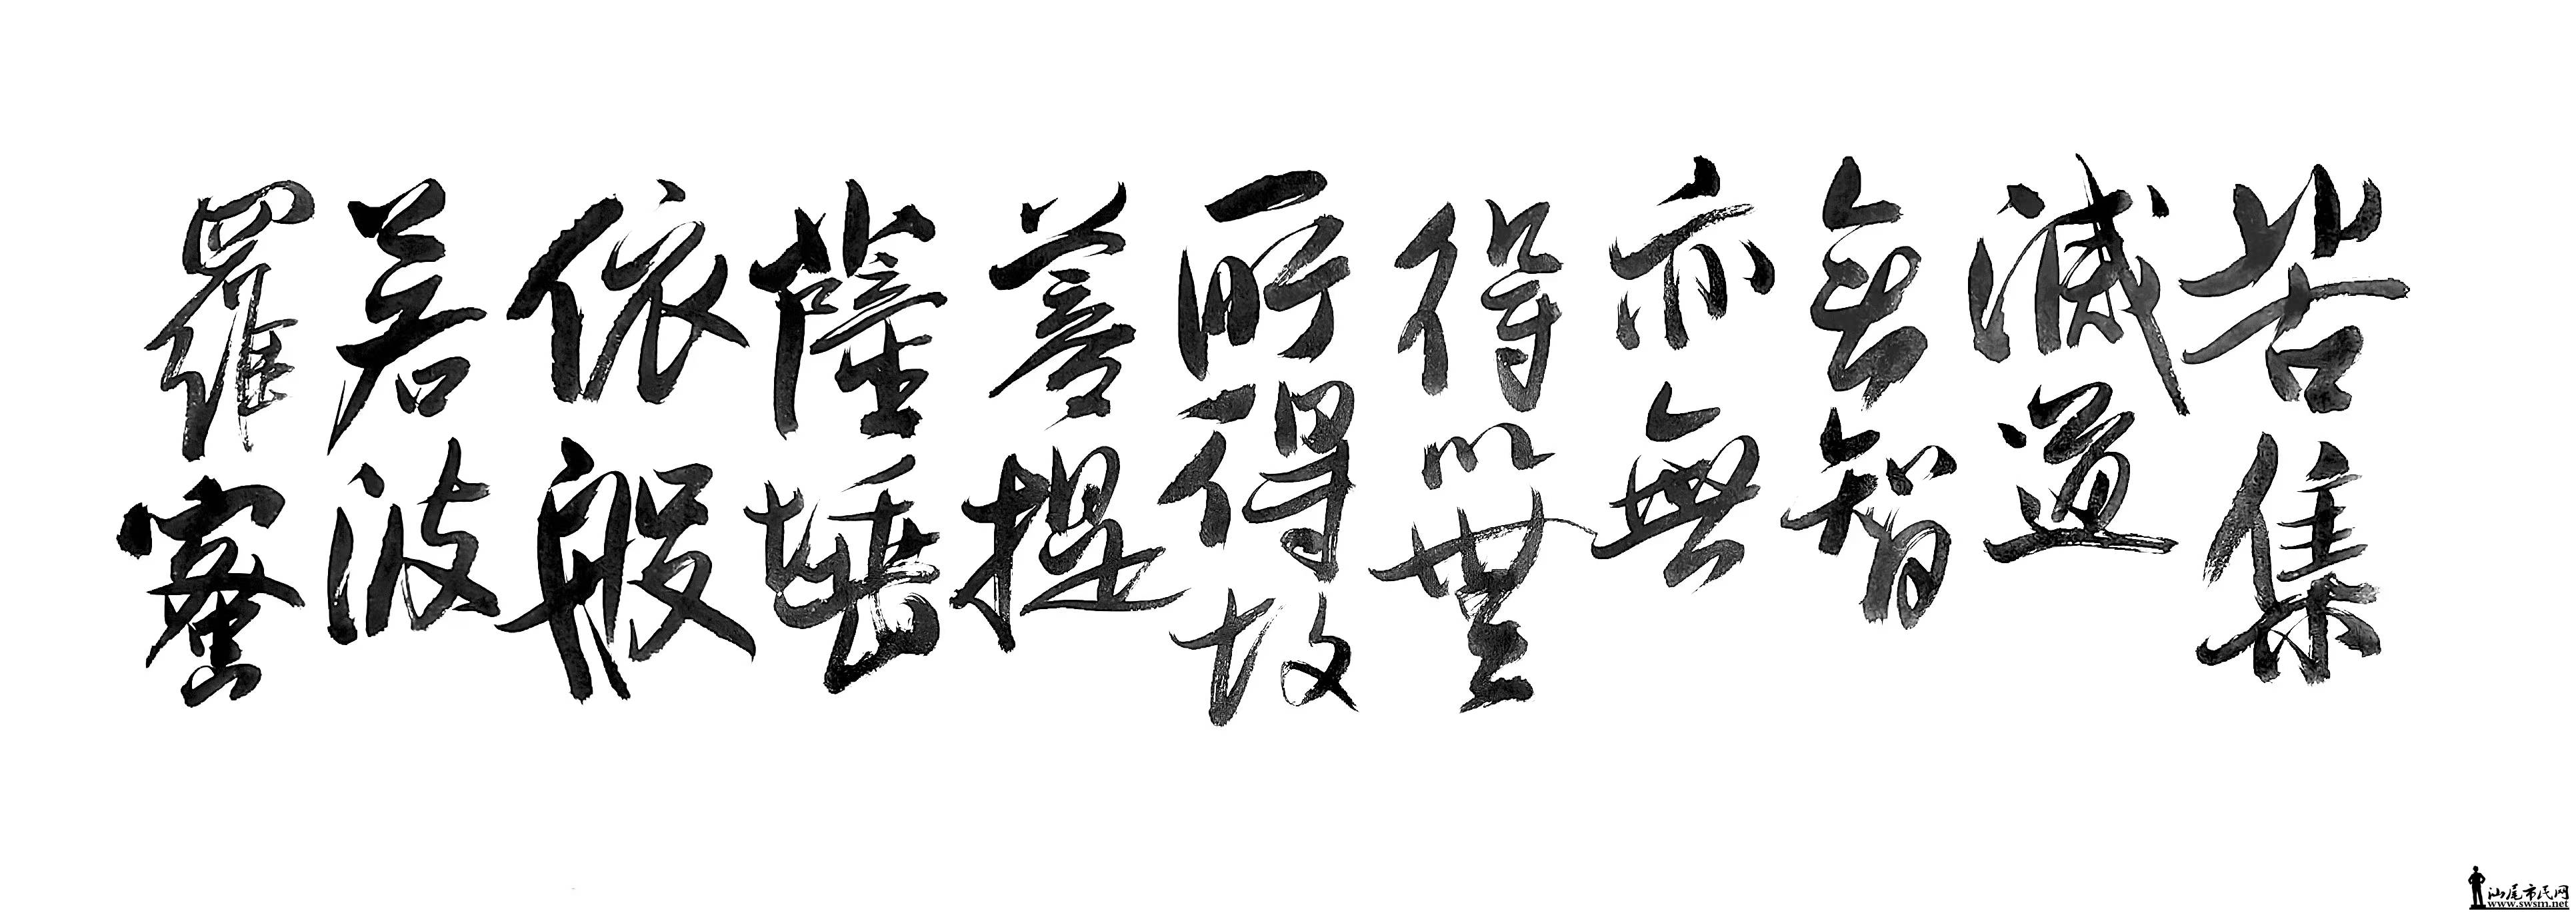 苦集
滅道
無智
亦無
得以無
所得故
菩提
薩埵
依般
若波
羅蜜
汕尾市民网
www.swsm.net